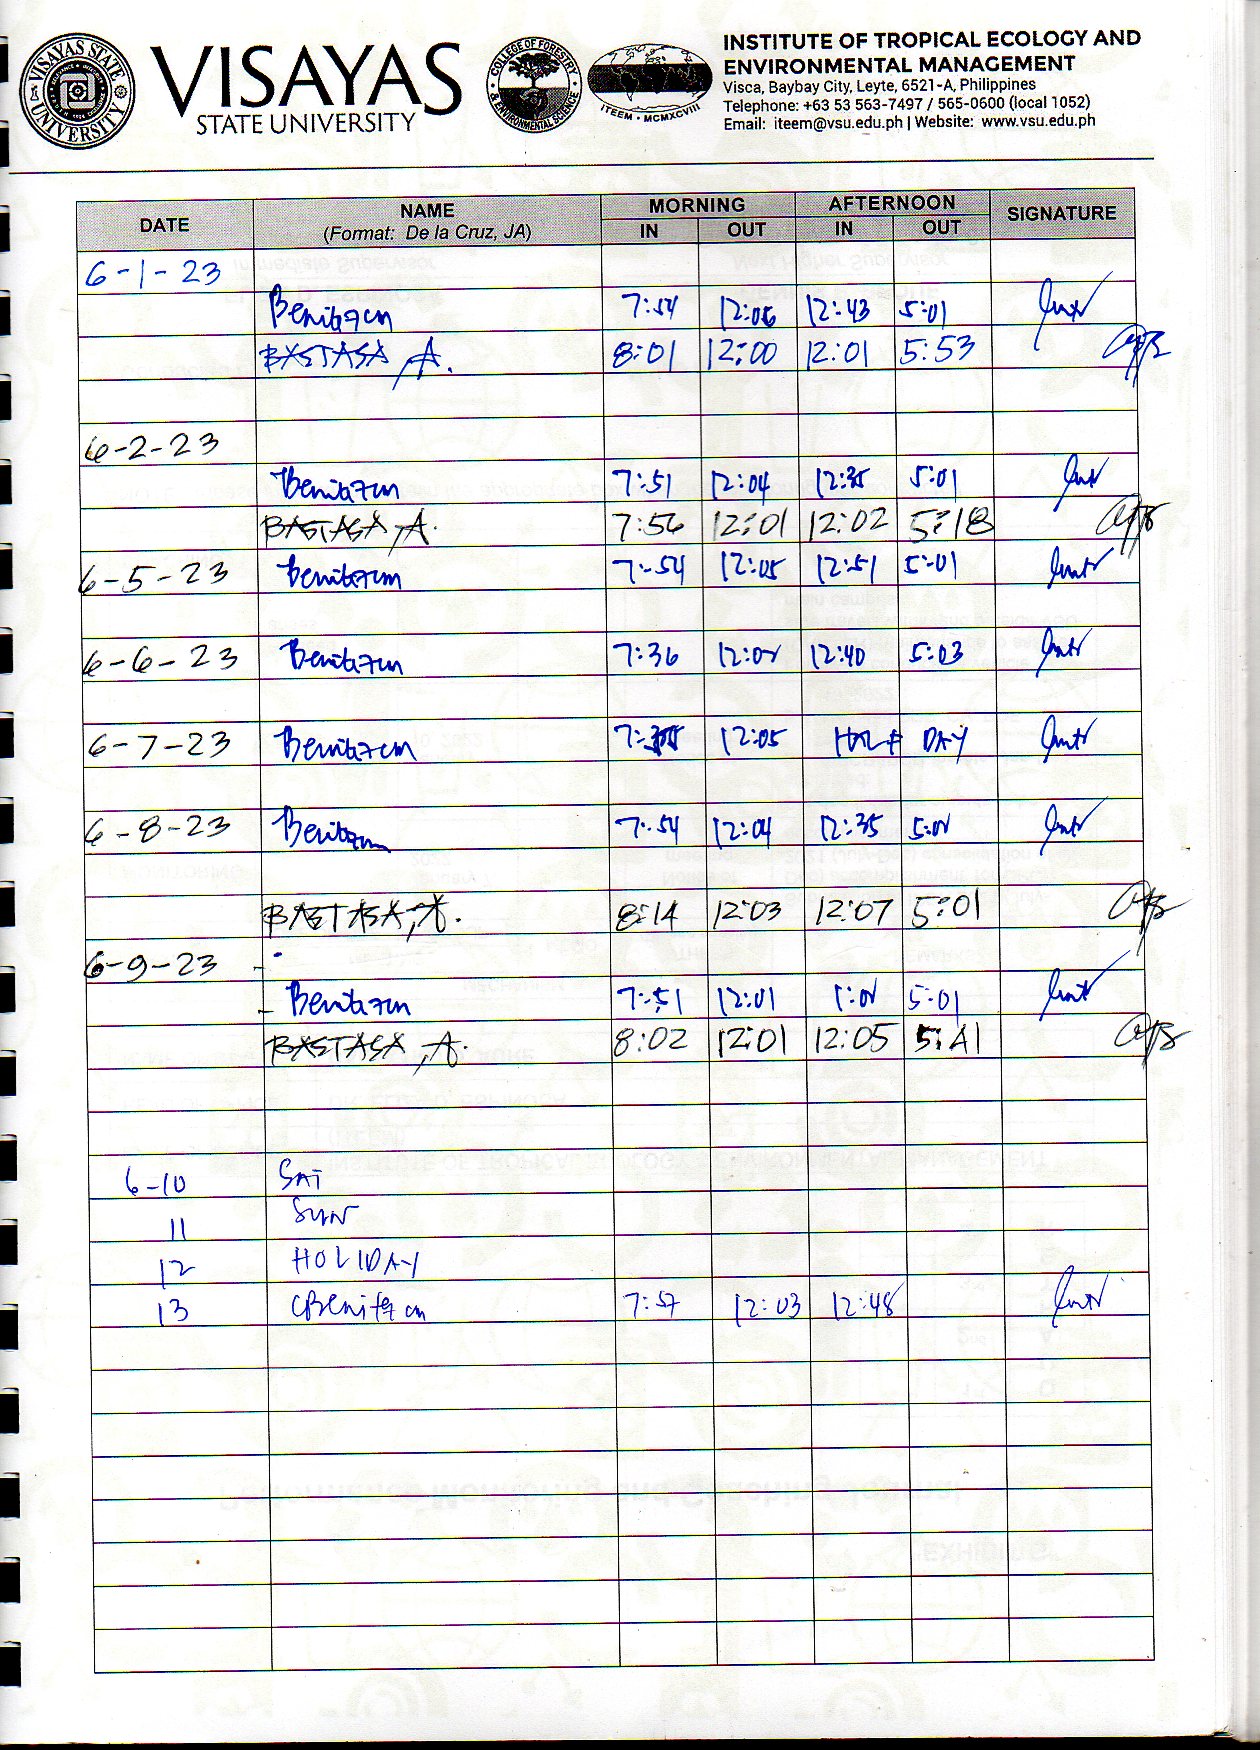 VISAYAS STATE UNIVERSITY
COLLEGE OF FORESTRY & ENVIRONMENTAL SCIENCE
ITEEM • MCMXCVIII
VISAYAS
STATE UNIVERSITY
INSTITUTE OF TROPICAL ECOLOGY AND
ENVIRONMENTAL MANAGEMENT
Visca, Baybay City, Leyte, 6521-A, Philippines
Telephone: +63 53 563-7497 / 565-0600 (local 1052)
Email: iteem@vsu.edu.ph | Website: www.vsu.edu.ph
DATE NAME MORNING AFTERNOON SIGNATURE
(Format: De la Cruz, JA) IN OUT IN OUT
6-1-23
7:54 12:06 12:43 5:01
BASTASA, A. 8:01 12:00 12:01 5:53
6-2-23
7:51 12:04 12:35 5:01
BASTASA, A. 7:56 12:01 12:02 5:18
6-5-23 7:54 12:05 12:51 5:01
6-6-23 7:36 12:40 5:03
6-7-23 12:05 HALF DAY
6-8-23 7:54 12:04 12:35
BASTASA, A. 8:14 12:03 12:07 5:01
6-9-23
7:51 12:01 5:01
BASTASA, A. 8:02 12:01 12:05 5:41
6-10 SAT
11 SUN
12 HOLIDAY
13 7:57 12:03 12:48